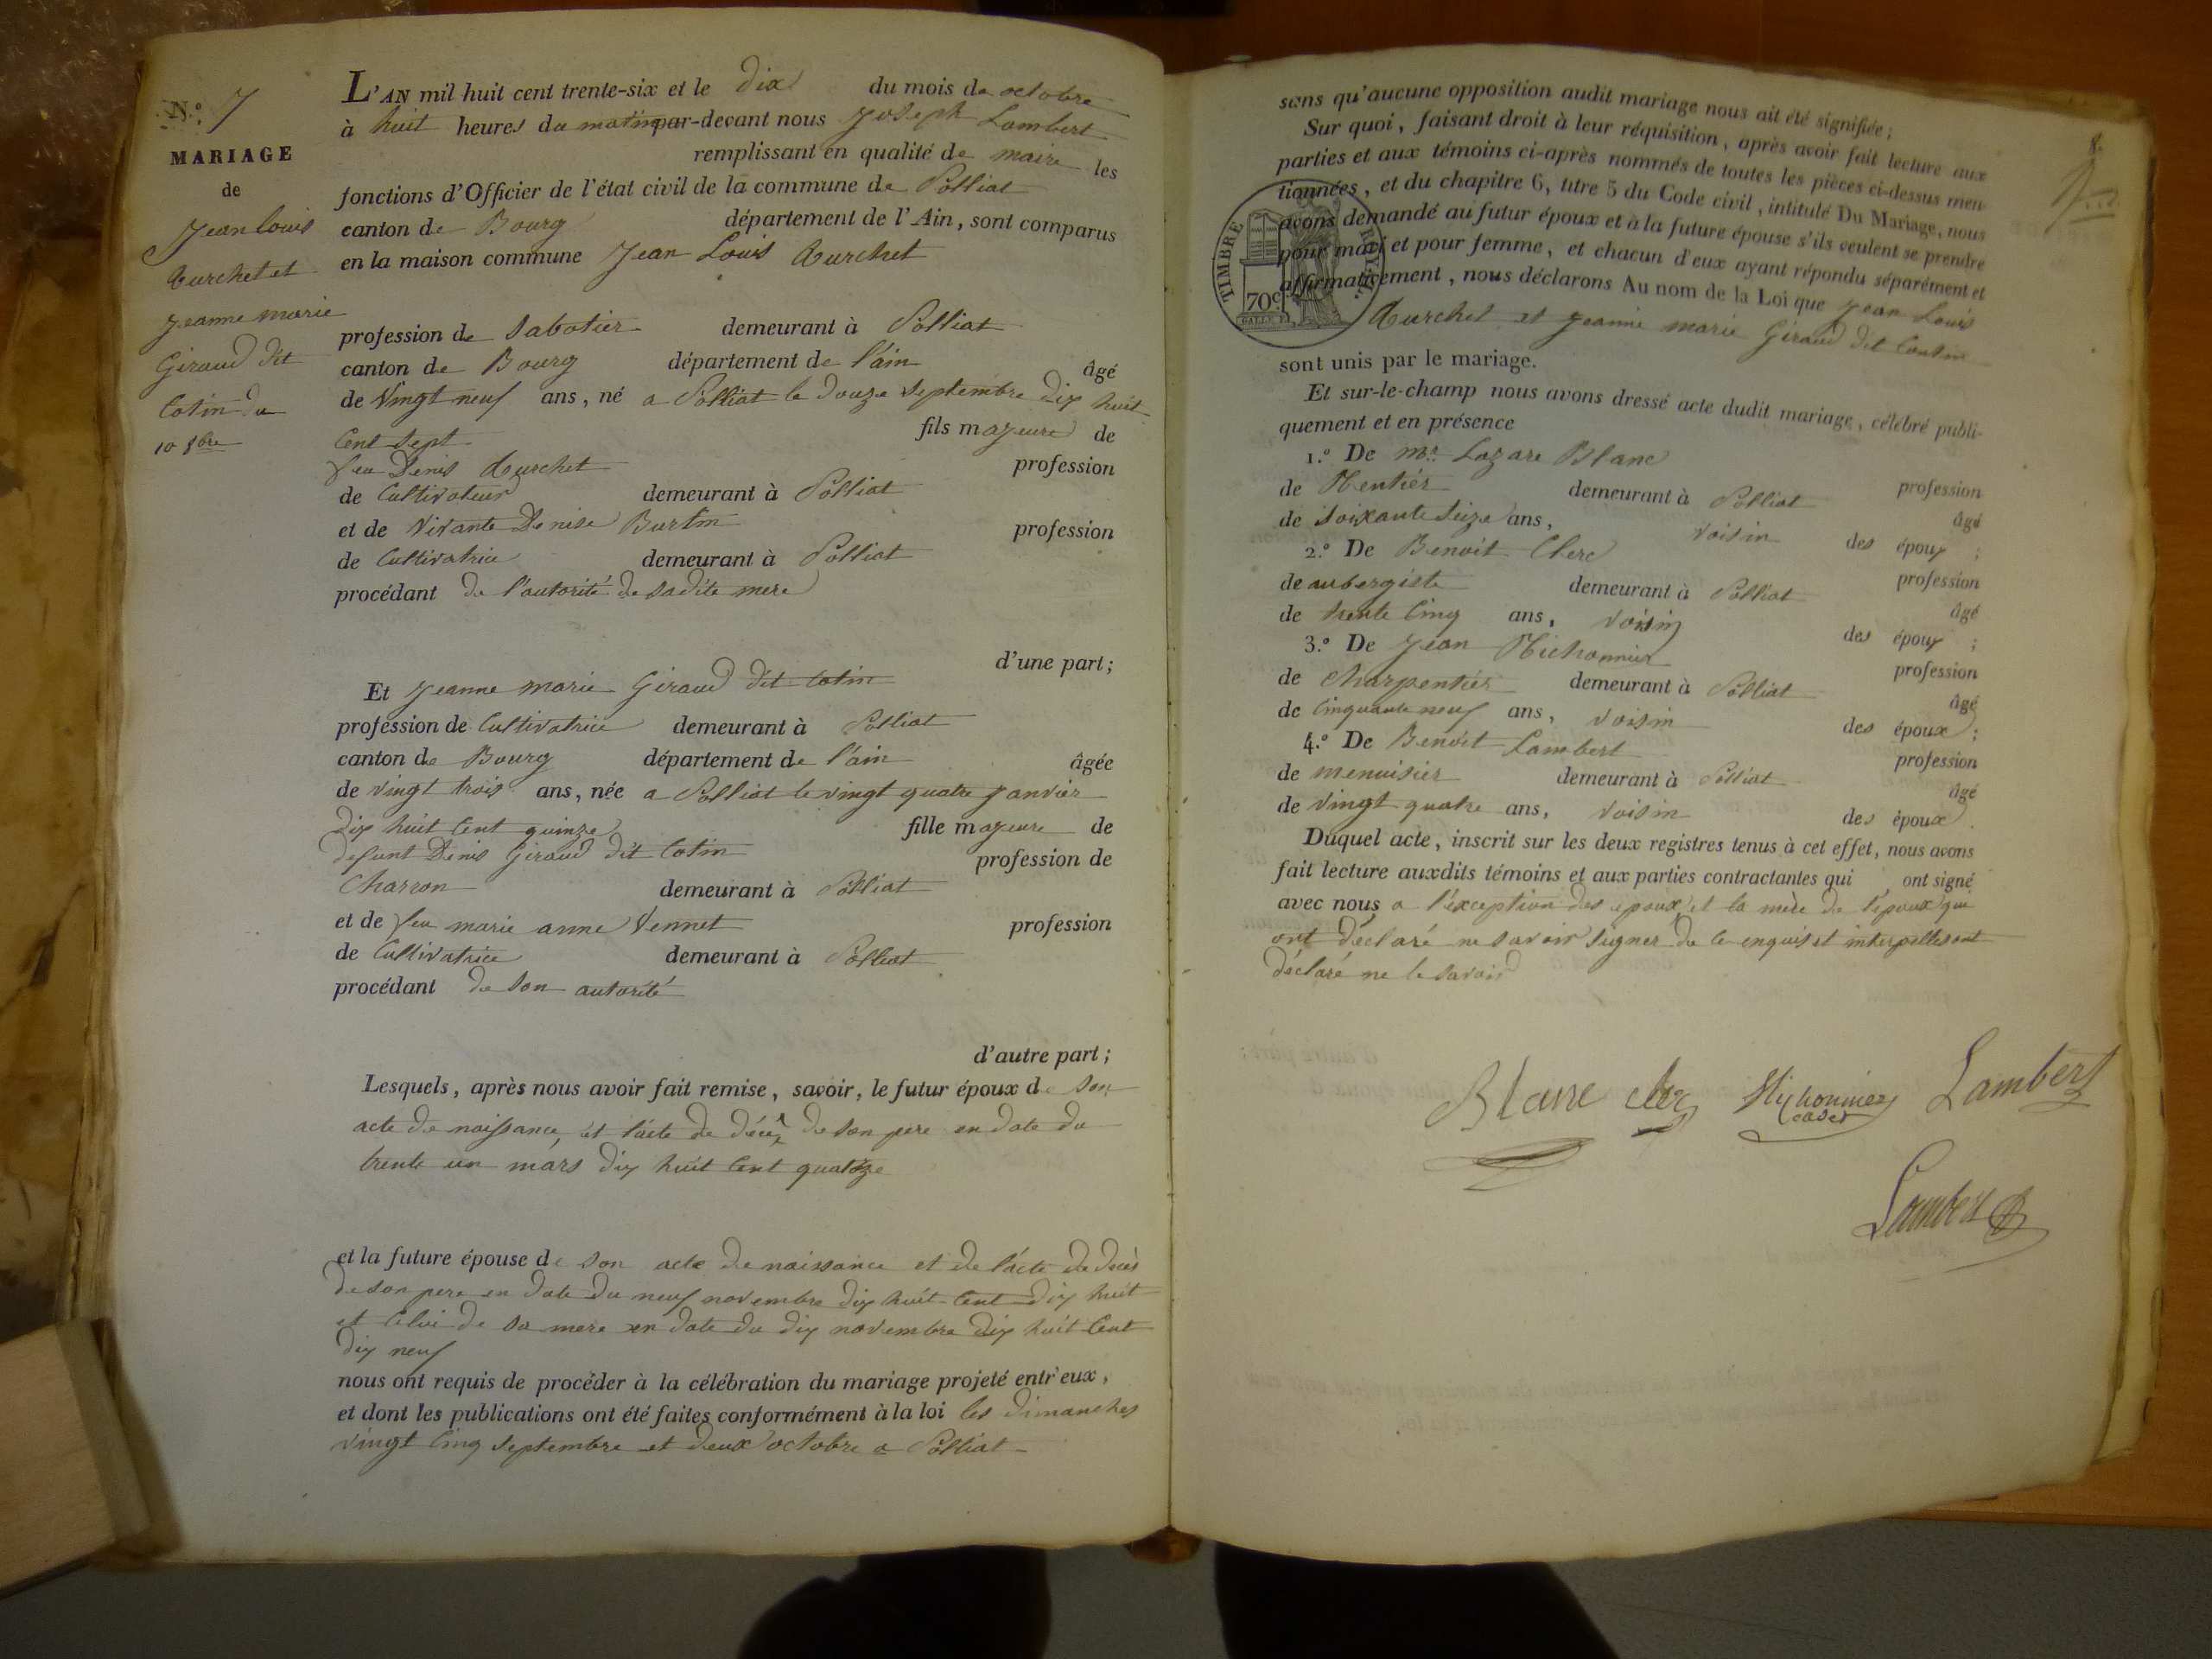 N.º 7
MARIAGE
de
Jean Louis
Curchet et
jeanne marie
Giraud dit
Cotin du
10 8bre
L'AN mil huit cent trente-six et le dix du mois de octobre
à huit heures du matin par-devant nous joseph Lambert
remplissant en qualité de maire les
fonctions d'Officier de l'état civil de la commune de Polliat
canton de Bourg département de l'Ain, sont comparus
en la maison commune Jean Louis Curchet
profession de Sabotier demeurant à Polliat
canton de Bourg département de l'ain âgé
de Vingt neuf ans, né a Polliat le douze septembre dix huit
Cent sept fils majeure de
feu Denis Curchet profession
de Cultivateur demeurant à Polliat
et de vivante Denise Burtin profession
de Cultivatrice demeurant à Polliat
procédant de l'autorité de sadite mere
d'une part;
Et jeanne marie Giraud dit Cotin
profession de Cultivatrice demeurant à Polliat
canton de Bourg département de l'ain âgée
de vingt trois ans, née a Polliat le vingt quatre janvier
dix huit Cent quinze fille majeure de
defunt Denis Giraud dit Cotin profession de
Charron demeurant à Polliat
et de feu marie anne Vennet profession
de Cultivatrice demeurant à Polliat
procédant de son autorité
d'autre part;
Lesquels, après nous avoir fait remise, savoir, le futur époux de son
acte de naissance, et l'acte de décès de son pere en date du
trente un mars dix huit Cent quatorze
et la future épouse de son acte de naissance et de l'acte de décès
de son pere en date du neuf novembre dix huit Cent dix huit
et Celui de sa mere en date du dix novembre dix huit Cent
dix neuf
nous ont requis de procéder à la célébration du mariage projeté entr'eux,
et dont les publications ont été faites conformément à la loi les dimanches
vingt Cinq septembre et deux octobre a Polliat
8.
TIMBRE ROYAL
70c
sans qu'aucune opposition audit mariage nous ait été signifiée;
Sur quoi, faisant droit à leur réquisition, après avoir fait lecture aux
parties et aux témoins ci-après nommés de toutes les pièces ci-dessus men
tionnées, et du chapitre 6, titre 5 du Code civil, intitulé Du Mariage, nous
avons demandé au futur époux et à la future épouse s'ils veulent se prendre
pour mari et pour femme, et chacun d'eux ayant répondu séparément et
affirmativement, nous déclarons Au nom de la Loi que jean Louis
Curchet et jeanne marie Giraud dit Cotin
sont unis par le mariage.
Et sur-le-champ nous avons dressé acte dudit mariage, célébré publi-
quement et en présence
1.º De mr. Lazare Blanc profession
de Rentier demeurant à Polliat âgé
de soixante seize ans, voisin des époux ;
2.º De Benoit Clerc profession
de aubergiste demeurant à Polliat âgé
de trente Cinq ans, voisin des époux ;
3.º De Jean Michonnier profession
de Charpentier demeurant à Polliat âgé
de Cinquante neuf ans, voisin des époux ;
4.º De Benoit Lambert profession
de menuisier demeurant à Polliat âgé
de vingt quatre ans, voisin des époux.
Duquel acte, inscrit sur les deux registres tenus à cet effet, nous avons
fait lecture auxdits témoins et aux parties contractantes qui ont signé
avec nous a l'exception des epoux et la mère de l'epoux qui
ont déclaré ne savoir signer de ce enquis et interpellés ont
déclaré ne le savoir
Blanc clerc Michonnier Lambert
cadet
Lambert